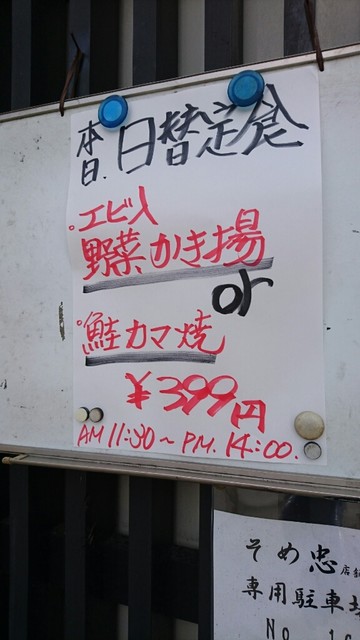 本日.日替定食
。エビ入
野菜かき揚
or
。鮭カマ焼
¥399円
AM 11:30～PM.14:00.
そめ忠
専用駐車場
No 1